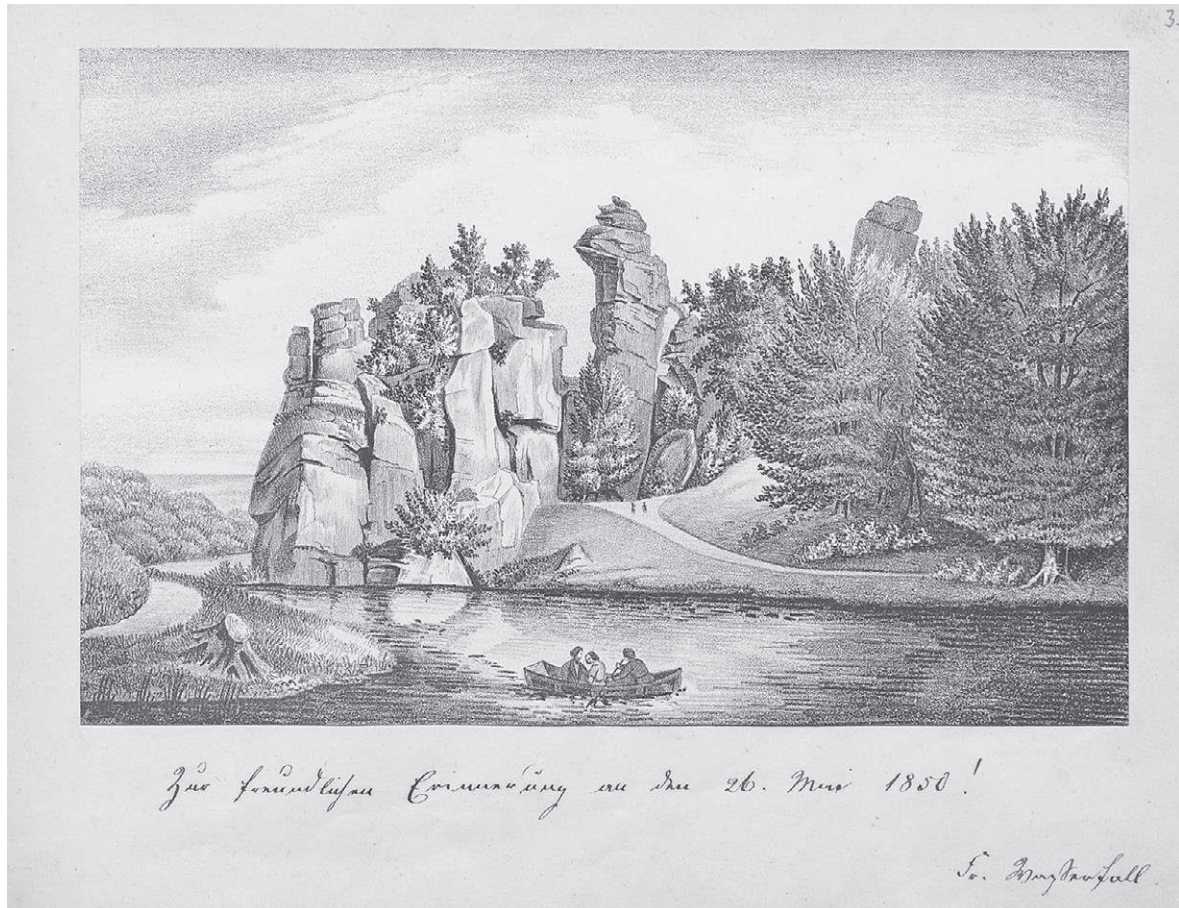 3.
Zur freundlichen Erinnerung an den 26. Mai 1850!
Fr. Wasserfall